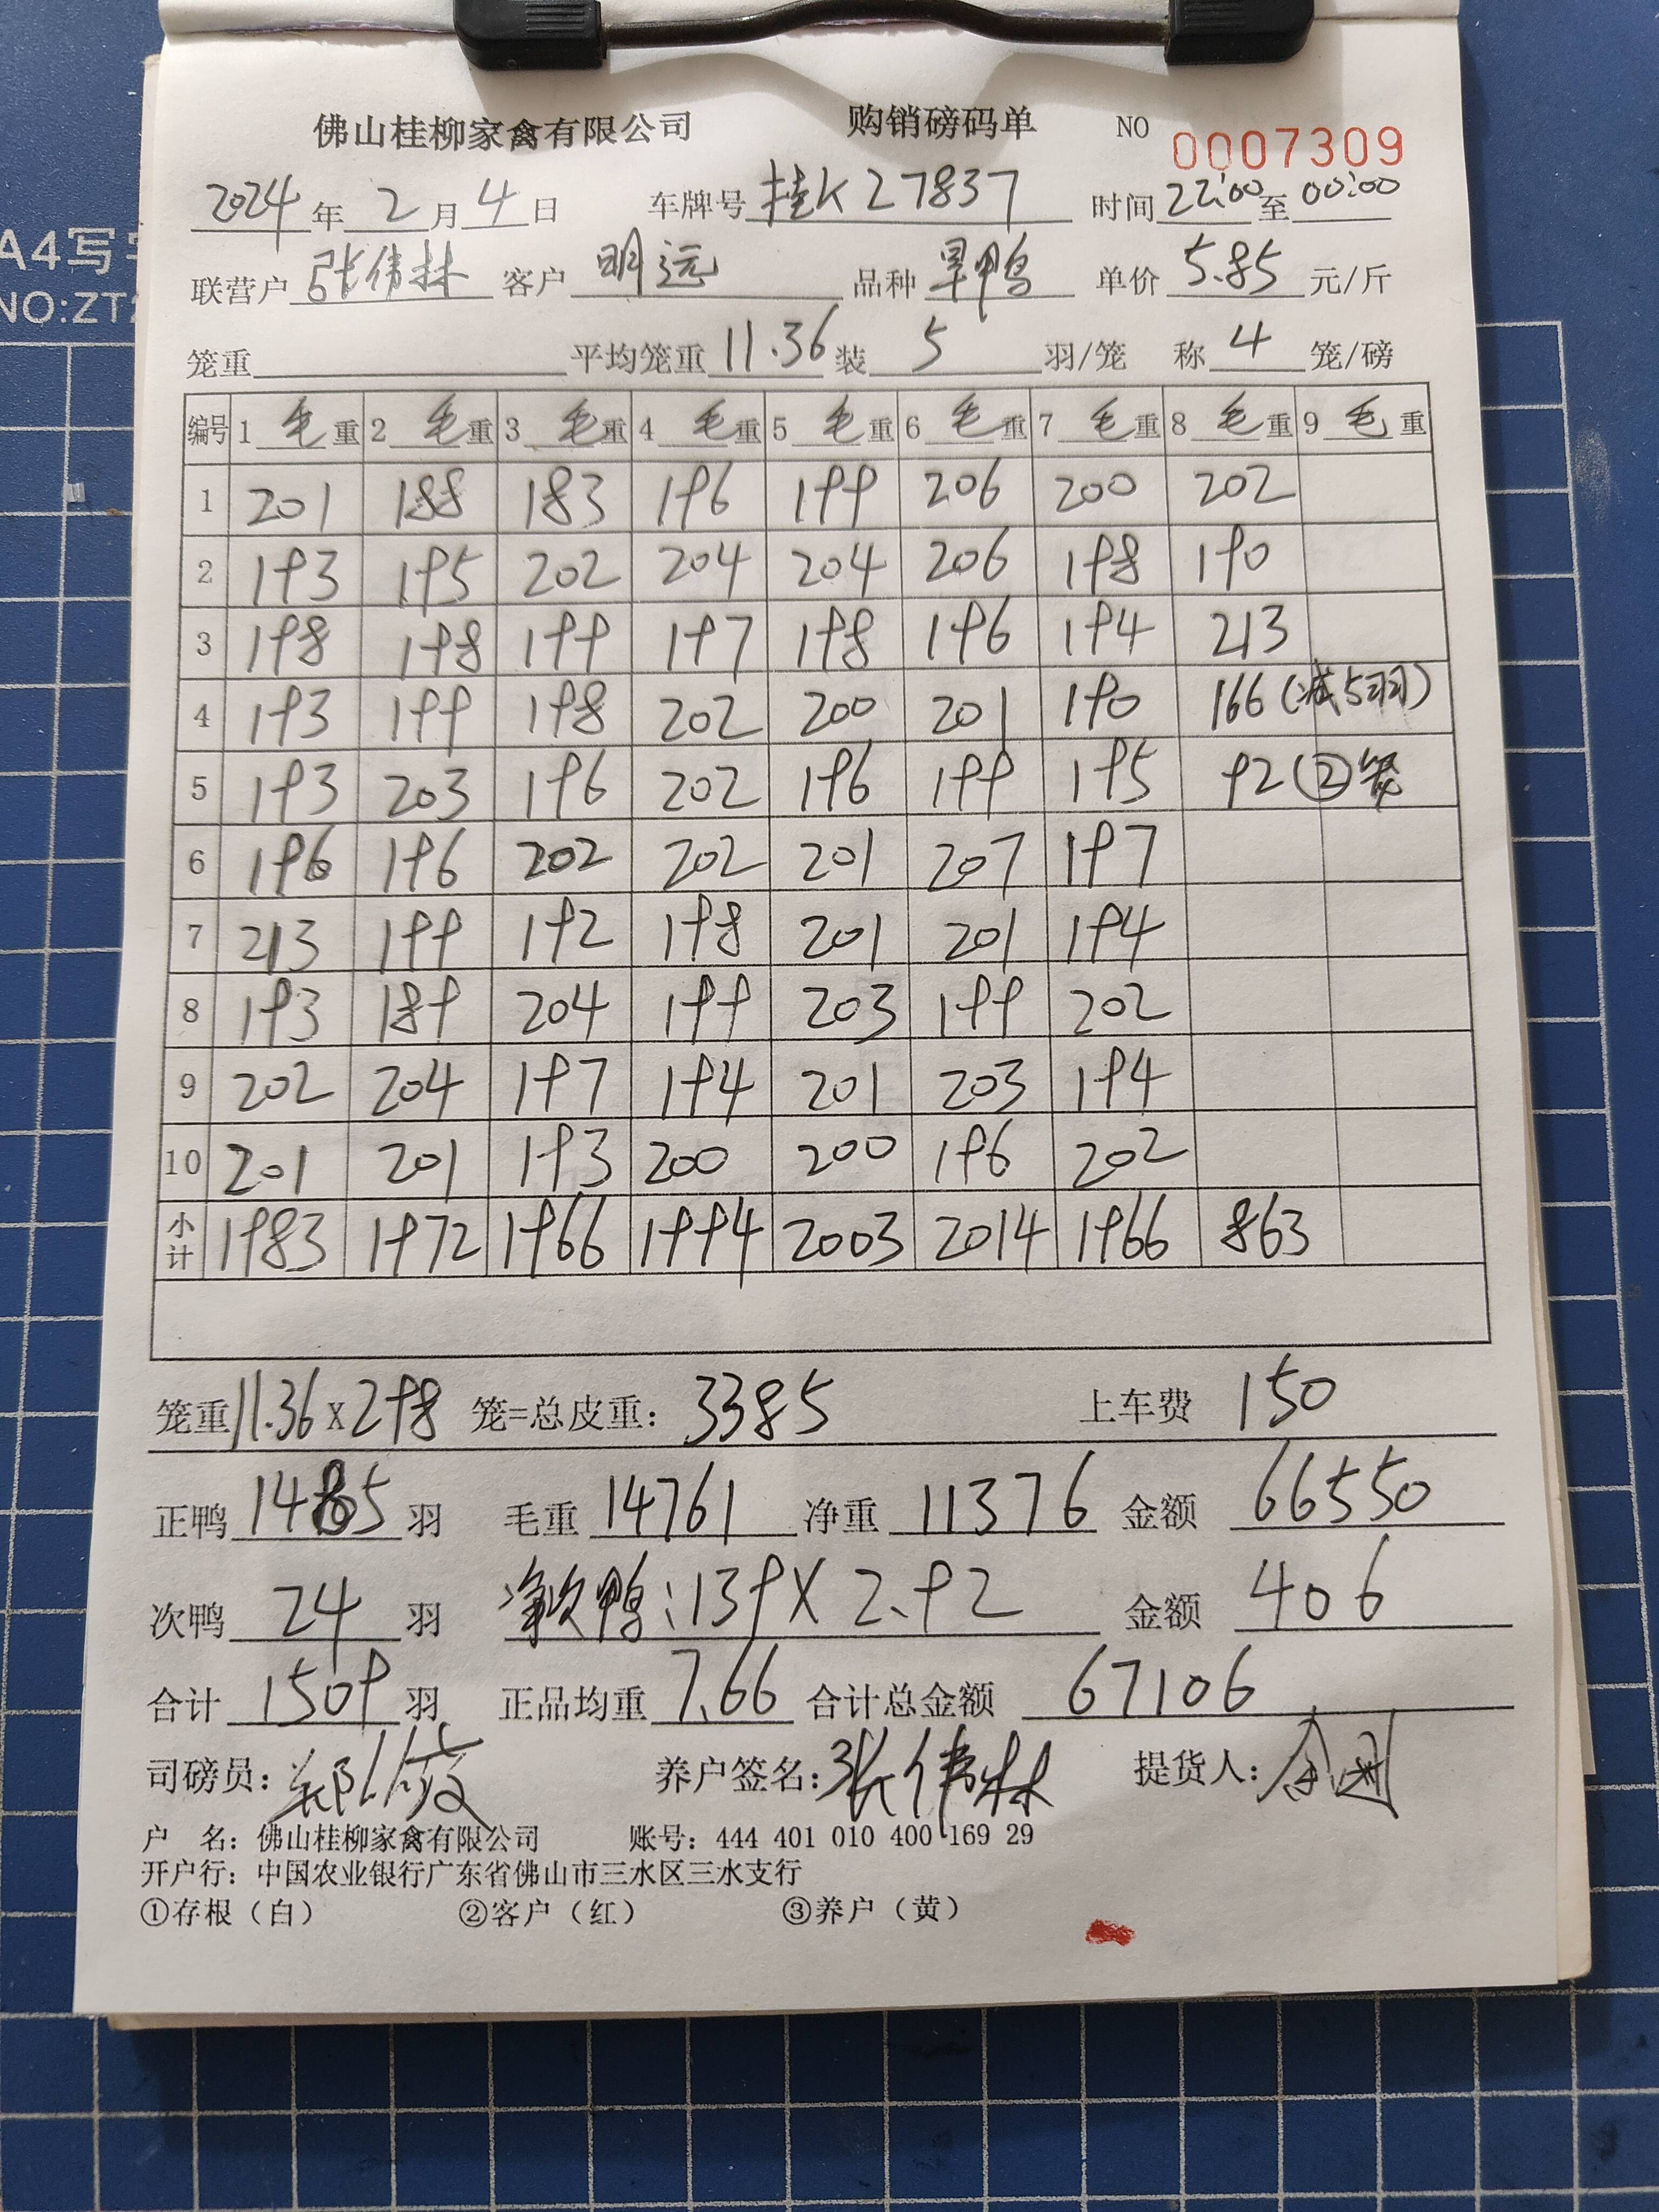 佛山桂柳家禽有限公司 购销磅码单 NO 0007309
2024年 2月 4日 车牌号 桂K27837 时间 22:00 至 00:00
联营户 张伟林 客户 明远 品种 旱鸭 单价 5.85 元/斤
笼重 平均笼重 11.36 装 5 羽/笼 称 4 笼/磅
编号 1 毛重 2 毛重 3 毛重 4 毛重 5 毛重 6 毛重 7 毛重 8 毛重 9 毛重
1 201 188 183 196 199 206 200 202
2 193 195 202 204 204 206 198 190
3 198 198 199 197 198 196 194 213
4 193 199 198 202 200 201 190 166(减5羽)
5 193 203 196 202 196 199 195 92(②笼
6 196 196 202 202 201 207 197
7 213 199 192 198 201 201 194
8 193 189 204 199 203 199 202
9 202 204 197 194 201 203 194
10 201 201 193 200 200 196 202
小计 1983 1972 1966 1994 2003 2014 1966 863
笼重 11.36 x 298 笼=总皮重: 3385 上车费 150
正鸭 1485 羽 毛重 14761 净重 11376 金额 66550
次鸭 24 羽 净次鸭:139X2.92 金额 406
合计 1509 羽 正品均重 7.66 合计总金额 67106
司磅员: 养户签名: 张伟林 提货人:
户 名: 佛山桂柳家禽有限公司 账号: 444 401 010 400 169 29
开户行: 中国农业银行广东省佛山市三水区三水支行
①存根(白) ②客户(红) ③养户(黄)
A4写字
NO:ZT2